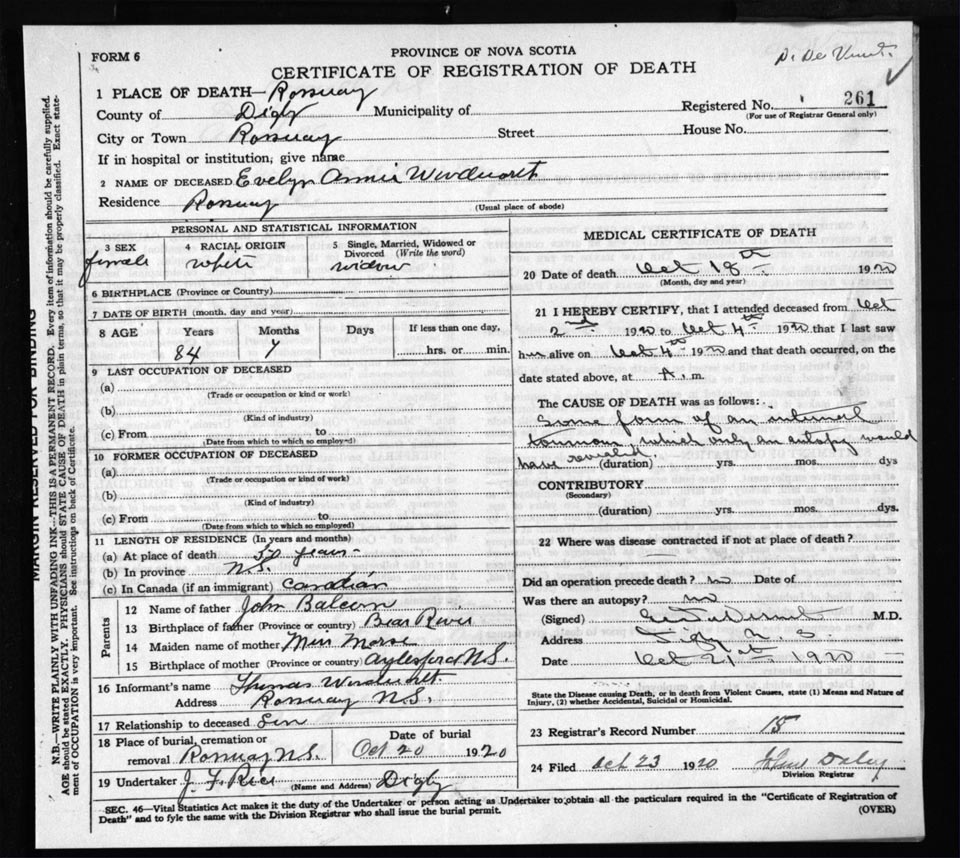 FORM 6
PROVINCE OF NOVA SCOTIA
CERTIFICATE OF REGISTRATION OF DEATH
1 PLACE OF DEATH—Rossway
County of Digby Municipality of
Registered No. 261
(For use of Registrar General only)
City or Town Rossway Street House No.
If in hospital or institution, give name
2 NAME OF DECEASED Evelyn Annie
Residence Rossway (Usual place of abode)
PERSONAL AND STATISTICAL INFORMATION
3 SEX female
4 RACIAL ORIGIN white
5 Single, Married, Widowed or Divorced (Write the word) widow
6 BIRTHPLACE (Province or Country)
7 DATE OF BIRTH (month, day and year)
8 AGE Years Months Days If less than one day,
84 7 hrs. or min.
9 LAST OCCUPATION OF DECEASED
(a)
(Trade or occupation or kind or work)
(b)
(Kind of industry)
(c) From to
(Date from which to which so employed)
10 FORMER OCCUPATION OF DECEASED
(a)
(Trade or occupation or kind or work)
(b)
(Kind of industry)
(c) From to
(Date from which to which so employed)
11 LENGTH OF RESIDENCE (In years and months)
(a) At place of death 50 years
(b) In province N.S.
(c) In Canada (if an immigrant) Canadian
Parents
12 Name of father John Balcom
13 Birthplace of father (Province or country) Bear River
14 Maiden name of mother Miss Morse
15 Birthplace of mother (Province or country) Aylesford N.S.
16 Informant's name Thomas
Address Rossway N.S.
17 Relationship to deceased Son
18 Place of burial, cremation or removal Rossway N.S.
Date of burial Oct 20 1920
19 Undertaker J. F. Rice (Name and Address) Digby
MEDICAL CERTIFICATE OF DEATH
20 Date of death Oct 18th 1920
(Month, day and year)
21 I HEREBY CERTIFY, that I attended deceased from Oct
2nd 1920 to Oct 4th 1920 that I last saw
her alive on Oct 4th 1920 and that death occurred, on the
date stated above, at A. m.
The CAUSE OF DEATH was as follows:
Some form of an internal
tumour, which only an autopsy would
have revealed. (duration) yrs. mos. dys
CONTRIBUTORY
(Secondary)
(duration) yrs. mos. dys.
22 Where was disease contracted if not at place of death?
Did an operation precede death? no Date of
Was there an autopsy? no
(Signed) M.D.
Address Digby N. S.
Date Oct 21st 1920
State the Disease causing Death, or in death from Violent Causes, state (1) Means and Nature of
Injury, (2) whether Accidental, Suicidal or Homicidal.
23 Registrar's Record Number 15
24 Filed Oct 23 1920 Daley
Division Registrar
SEC. 46—Vital Statistics Act makes it the duty of the Undertaker or person acting as Undertaker to obtain all the particulars required in the "Certificate of Registration of
Death" and to fyle the same with the Division Registrar who shall issue the burial permit.
(OVER)
MARGIN RESERVED FOR BINDING
N.B.—WRITE PLAINLY WITH UNFADING INK—THIS IS A PERMANENT RECORD. Every item of information should be carefully supplied.
AGE should be stated EXACTLY. PHYSICIANS should STATE CAUSE OF DEATH in plain terms, so that it may be properly classified. Exact state-
ment of OCCUPATION is very important. See instructions on back of Certificate.